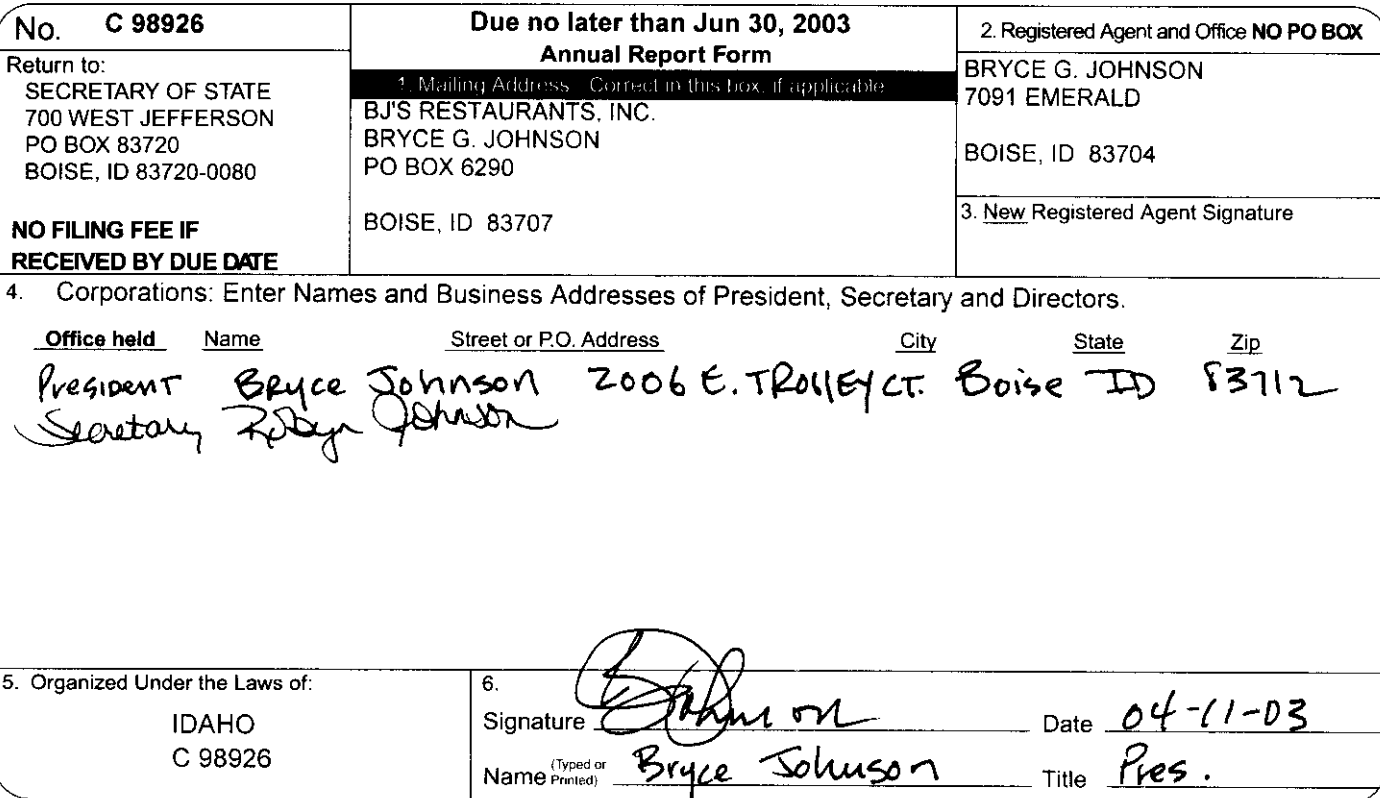 No. C 98926
Return to:
SECRETARY OF STATE
700 WEST JEFFERSON
PO BOX 83720
BOISE, ID 83720-0080
NO FILING FEE IF
RECEIVED BY DUE DATE
Due no later than Jun 30, 2003
Annual Report Form
1. Mailing Address Correct in this box, if applicable
BJ'S RESTAURANTS, INC.
BRYCE G. JOHNSON
PO BOX 6290
BOISE, ID 83707
2. Registered Agent and Office NO PO BOX
BRYCE G. JOHNSON
7091 EMERALD
BOISE, ID 83704
3. New Registered Agent Signature
4. Corporations: Enter Names and Business Addresses of President, Secretary and Directors.
Office held Name Street or P.O. Address City State Zip
President Bryce Johnson 2006 E. TROLLEY CT. Boise ID 83712
Secretary Robyn Johnson
5. Organized Under the Laws of:
IDAHO
C 98926
6.
Signature BJohnson Date 04-11-03
Name (Typed or Printed) Bryce Johnson Title Pres.